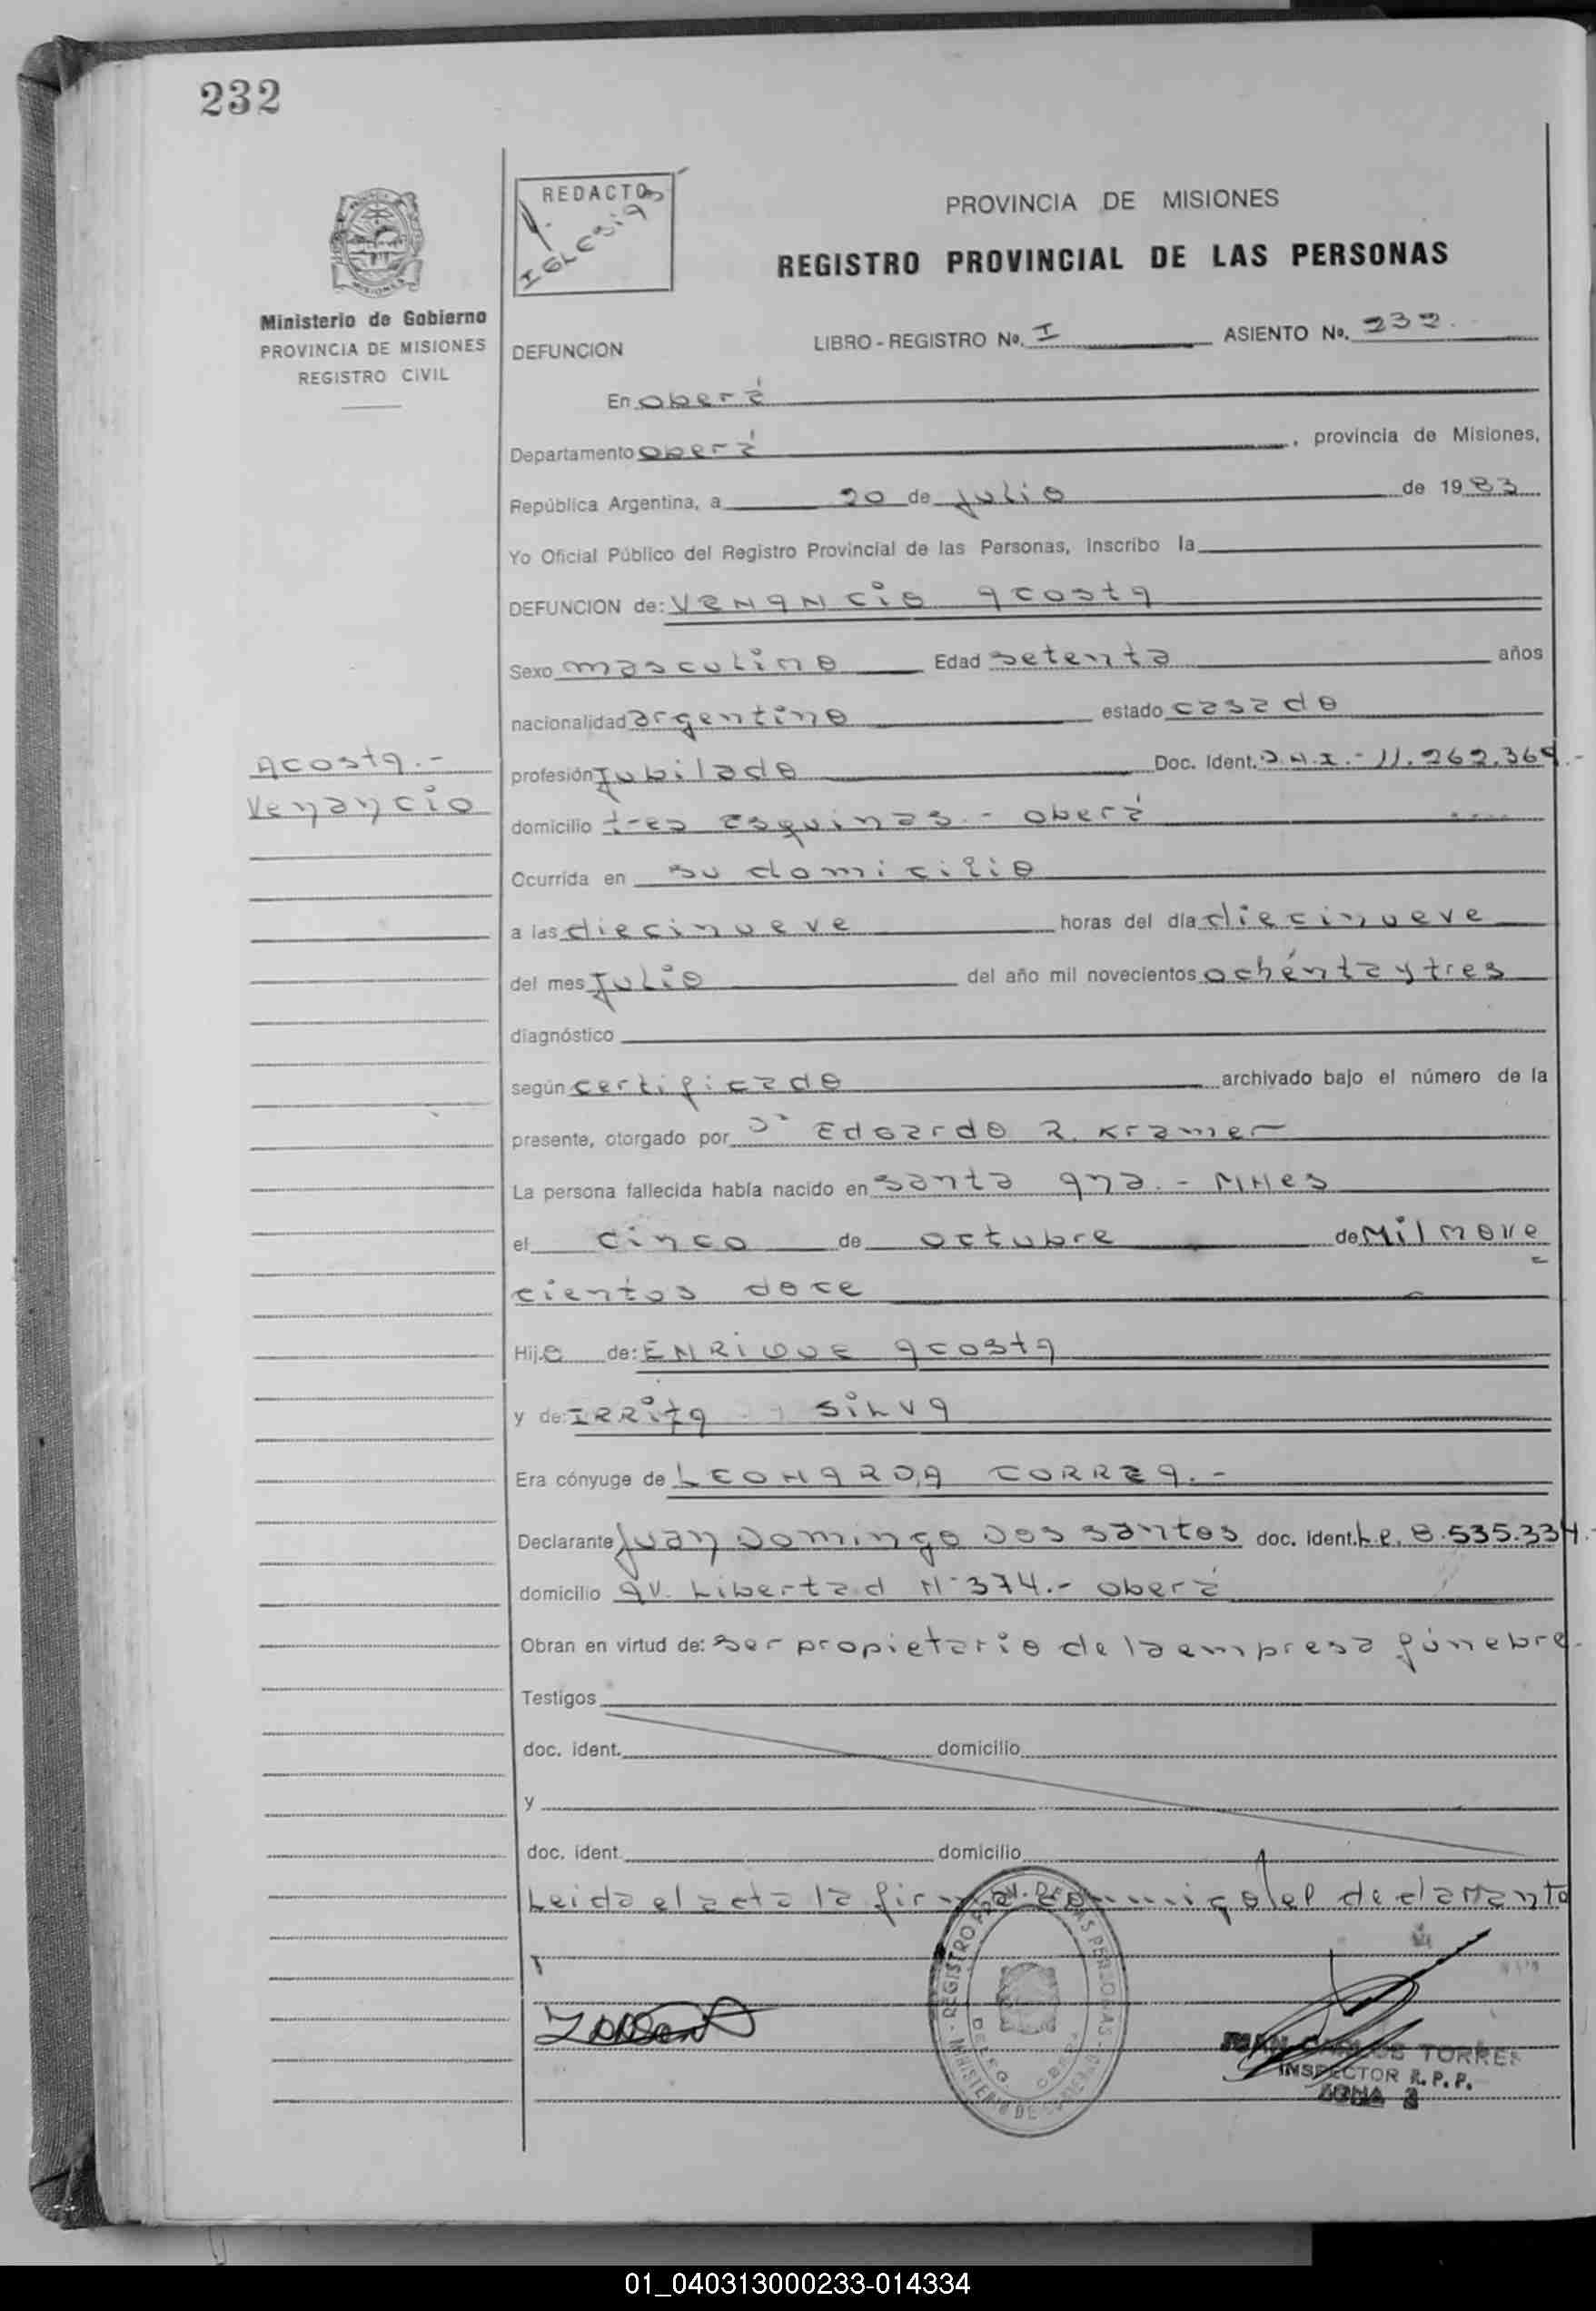 232
REDACTO
IGLESIAS
PROVINCIA DE MISIONES
REGISTRO PROVINCIAL DE LAS PERSONAS
Ministerio de Gobierno
PROVINCIA DE MISIONES
REGISTRO CIVIL
DEFUNCION LIBRO - REGISTRO No. I ASIENTO No. 232.
En oberá
Departamento oberá, provincia de Misiones,
República Argentina, a 20 de julio de 1983
Yo Oficial Público del Registro Provincial de las Personas, inscribo la
DEFUNCION de: VENANCIO ACOSTA
Sexo masculino Edad setenta años
nacionalidad argentino estado casado
Acosta.-
Venancio
profesión Jubilado Doc. Ident. D.N.I.- 11.262.369.-
domicilio tres esquinas.- oberá
Ocurrida en su domicilio
a las diecinueve horas del día diecinueve
del mes Julio del año mil novecientos ochénta y tres
diagnóstico
según certificado archivado bajo el número de la
presente, otorgado por Dr Edgardo R. Kramer
La persona fallecida había nacido en santa ana.- MNes
el cinco de octubre de Mil nove
cientos doce
Hijo de: ENRIQUE ACOSTA
y de: IRRITA SILVA
Era cónyuge de LEONARDA CORREA.-
Declarante Juan Domingo Dos santos doc. Ident. L.e. 8.535.334.-
domicilio AV. Libertad N° 374.- oberá
Obran en virtud de: ser propietario de la empresa fúnebre.
Testigos
doc. ident. domicilio
y
doc. ident. domicilio
Leida el acta la firma conmigo el declarante
REGISTRO PROV. DE LAS PERSONAS - MINISTERIO DE GOBIERNO
JUAN CARLOS TORRES
INSPECTOR R.P.P.
ZONA 2
01_040313000233-014334